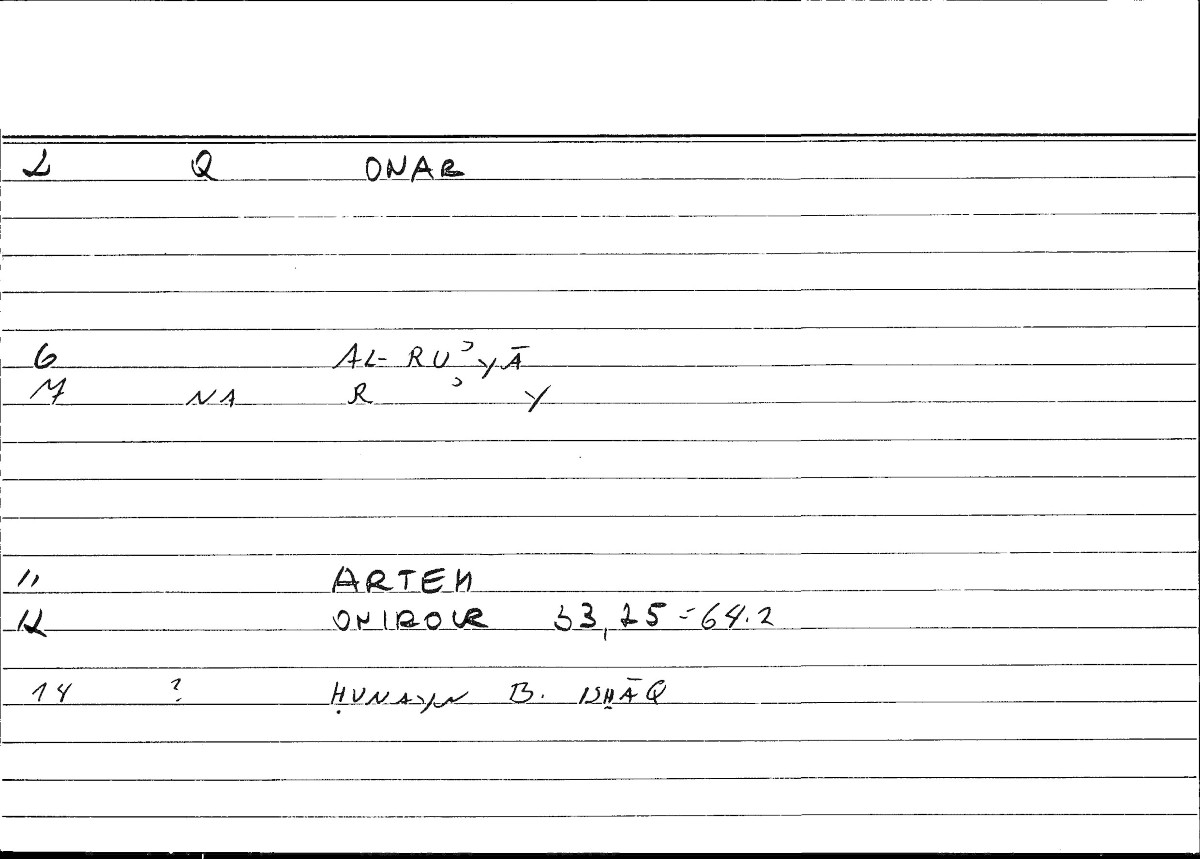 1 Q ONAR
6 AL-RUʾYĀ
7 NA R ʾ Y
11 ARTEM
12 ONIROCR 53,25-64.2
14 ? ḤUNAYN B. ISḤĀQ